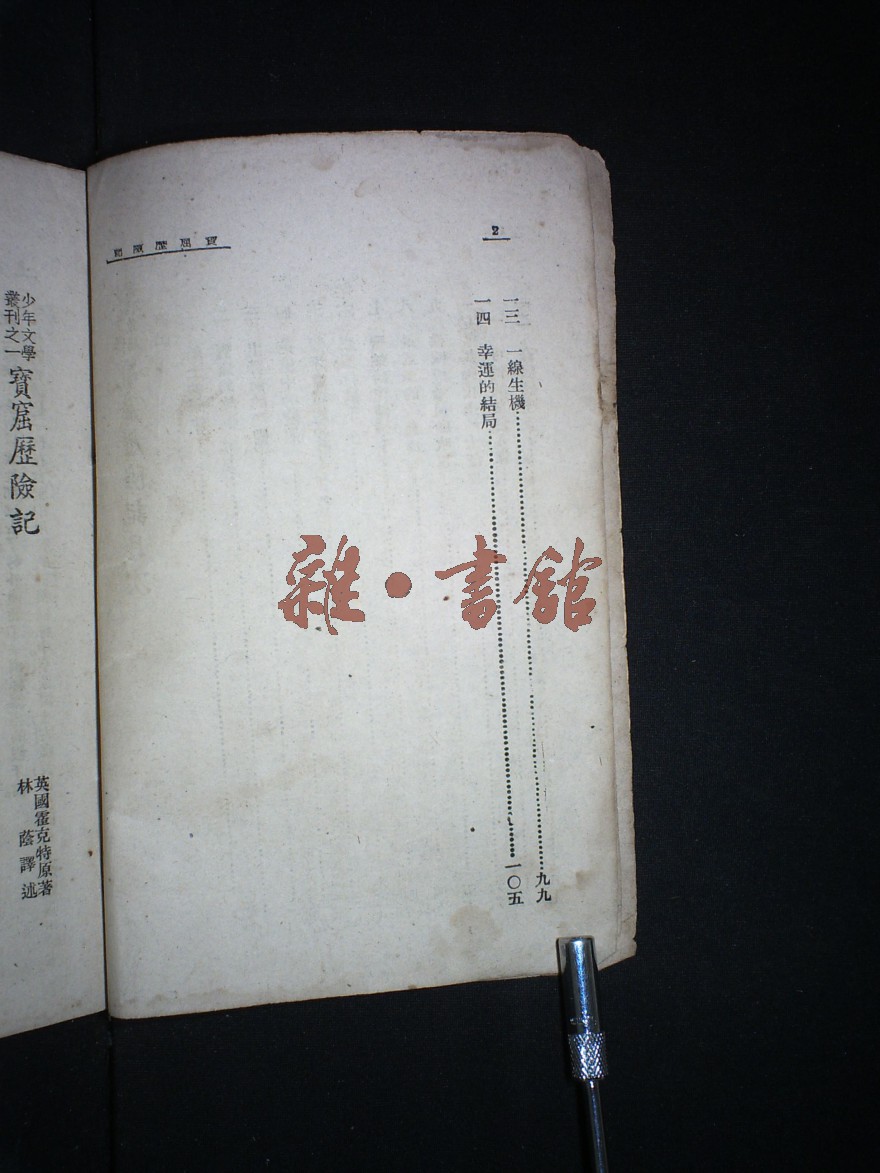 2
寶窟歷險記
一三 一線生機 九九
一四 幸運的結局 一〇五
少年文學
叢刊之一
寶窟歷險記
英國霍克特原著
林蔭譯述
雜·書館